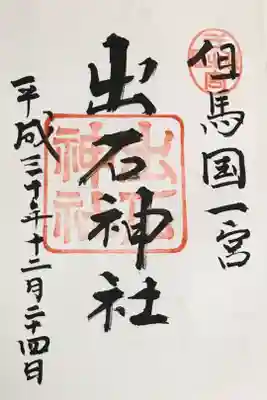 但馬国一宮
出石神社
出石
神社
平成三十年十二月二十四日